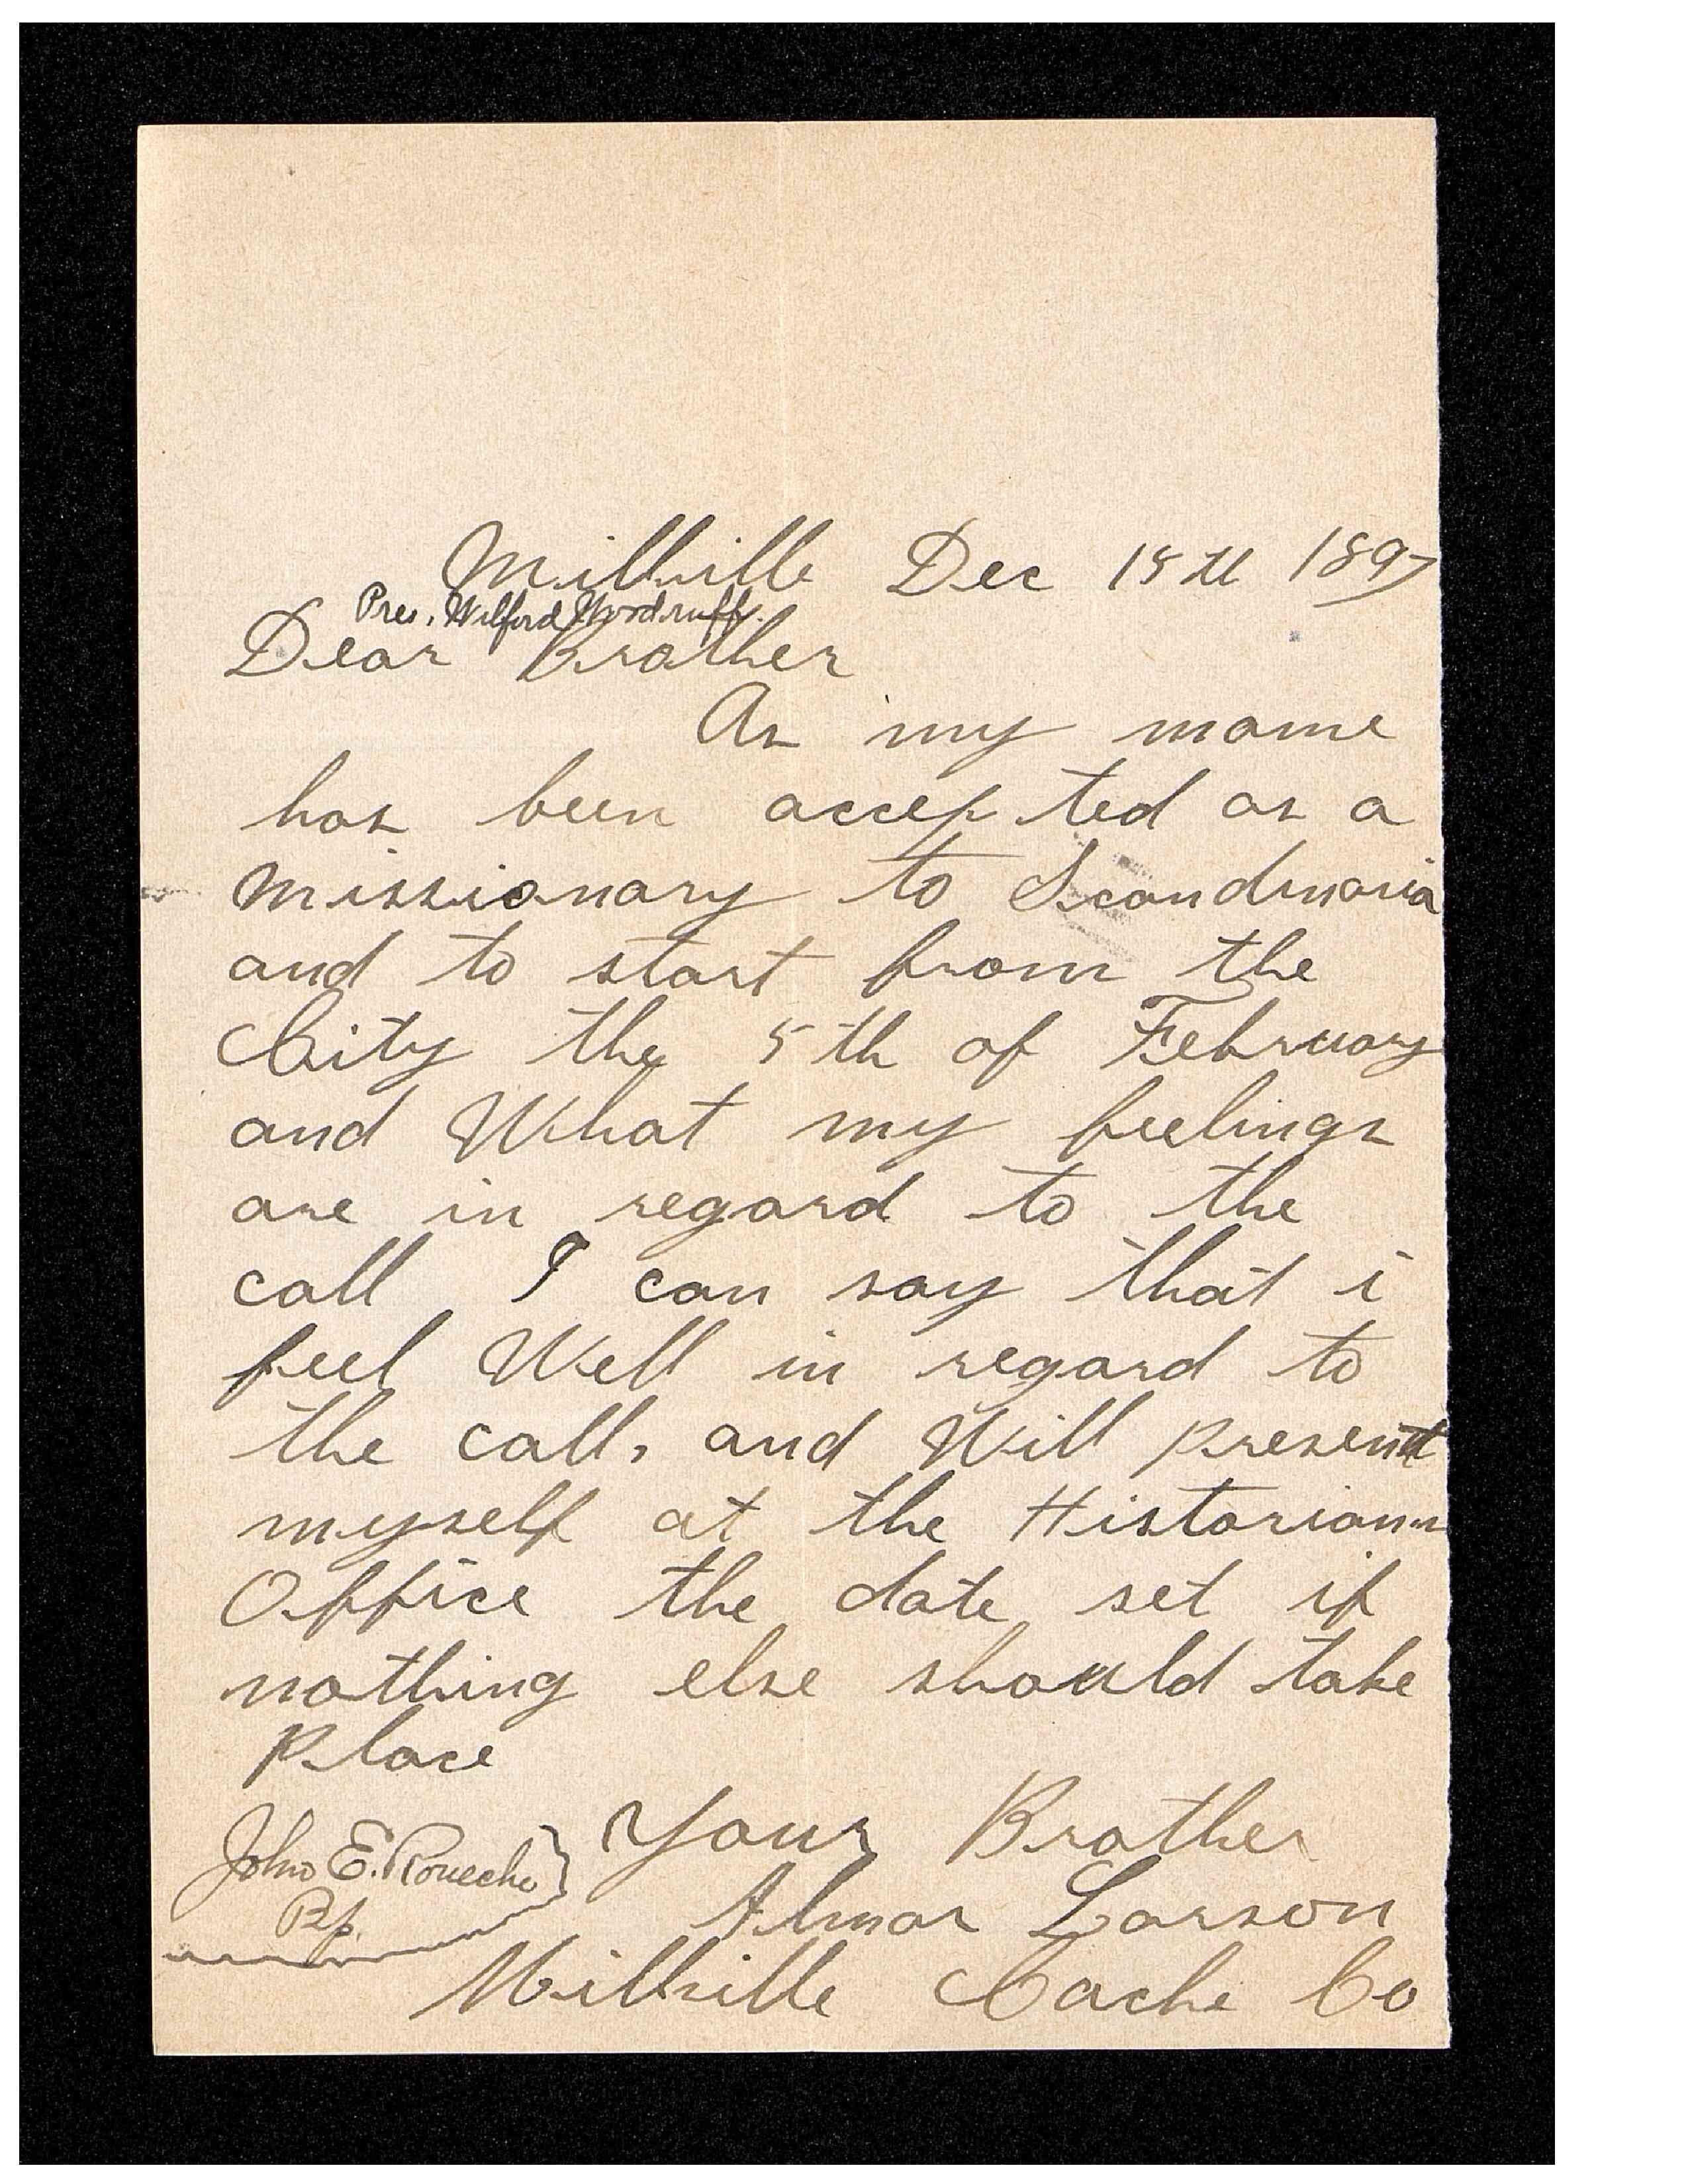 Millville Dec 15th 1897
Pres. Wilford Woodruff.
Dear Brother
As my name
has been accepted as a
missionary to Scandinavia
and to start from the
City the 5th of February
and What my feelings
are in regard to the
call I can say that i
feel Well in regard to
the call, and Will present
myself at the Historians
Office the date set if
nothing else should take
Place
Your Brother
John E. Roueche
Bp.
Almar Larson
Millville Cache Co